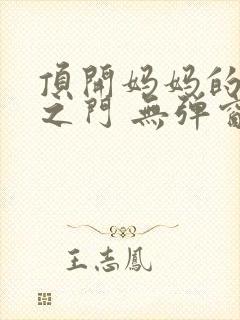 頂開妈妈的
之門 無弹窗
王志鳳